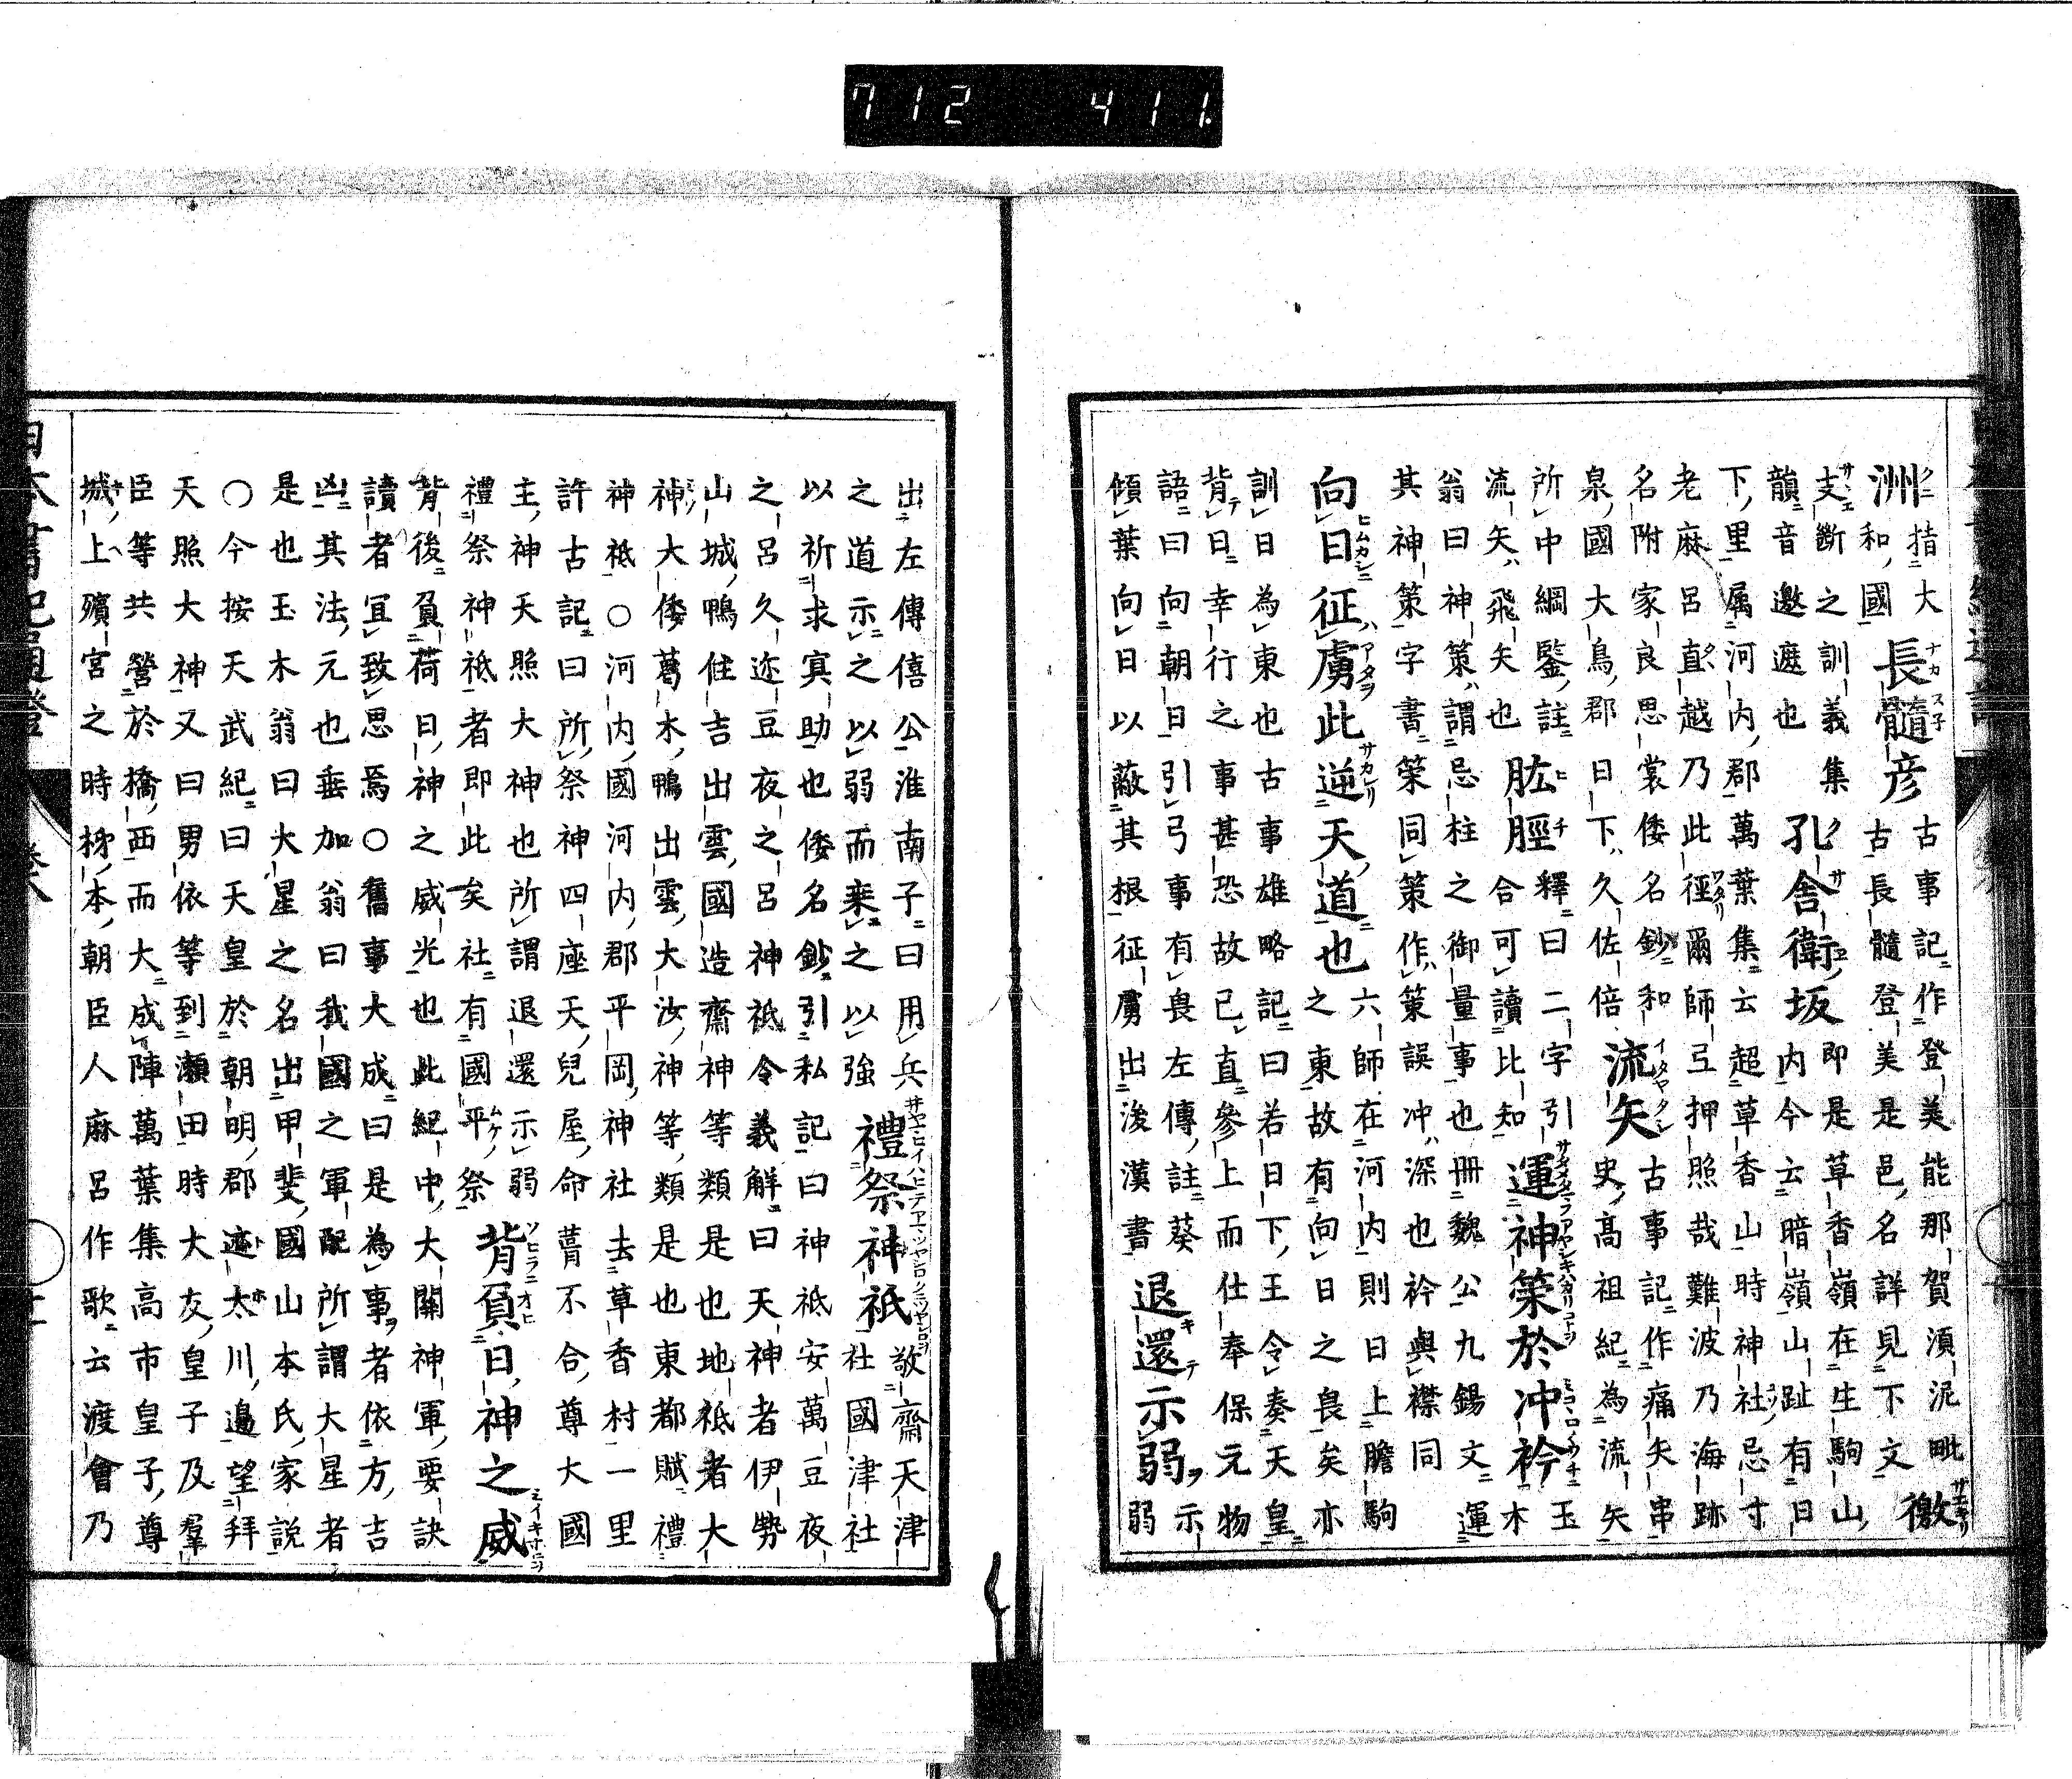 洲
指大
和國
長髓彦
古事記作登美能那賀須泥毗
古長髓登美是邑名詳見下文
徼
支斷之訓義集
韻音邀遮也
孔舍衛坂
即是草香嶺在生駒山
内今云暗嶺山趾有日
下里属河内郡萬葉集云超草香山時神社忌寸
老麻呂直越乃此徑爾師弖押照哉難波乃海跡
名附家良思裳倭名鈔和
泉國大鳥郡日下久佐倍
流矢
古事記作痛矢串
史高祖紀為流矢
所中綱鑒註
流矢飛矢也
肱脛
釋曰二字引
合可讀比知
運神策於冲衿
玉
木
翁曰神策謂忌柱之御量事也冊魏公九錫文運
其神策字書策同策作策誤冲深也衿與襟同
向日征虜此逆天道也
六師在河内則日上膽駒
之東故有向日之畏矣亦
訓日為東也古事雄略記曰若日下王令奏天皇
背日幸行之事甚恐故已直參上而仕奉保元物
語曰向朝日引弓事有畏左傳註葵
傾葉向日以蔽其根征虜出後漢書
退還示弱
示
弱
出左傳僖公淮南子曰用兵
之道示之以弱而乗之以強
禮祭神祇
敬齋天津
社國津社
以祈求寘助也倭名鈔引私記曰神祇安萬豆夜
之呂久迩豆夜之呂神祇令義解曰天神者伊勢
山城鴨住吉出雲國造齋神等類是也地祇者大
神大倭葛木鴨出雲大汝神等類是也東都賦禮
神祇○河内國河内郡平岡神社去草香村一里
許古記曰所祭神四座天兒屋命瞢不合尊大國
主神天照大神也所謂退還示弱
禮祭神祇者即此矣社有國平祭
背負日神之威
背後負荷日神之威光也此紀中大關神軍要訣
讀者宜致思焉○舊事大成曰是為事者依方吉
凶其法元也垂加翁曰我國之軍配所謂大星者
是也玉木翁曰大星之名出甲斐國山本氏家説
○今按天武紀曰天皇於朝明郡迹太川邊望拜
天照大神又曰男依等到瀬田時大友皇子及羣
臣等共營於橋西而大成陣萬葉集高市皇子尊
城上殯宮之時柹本朝臣人麻呂作歌云渡會乃
712 411.